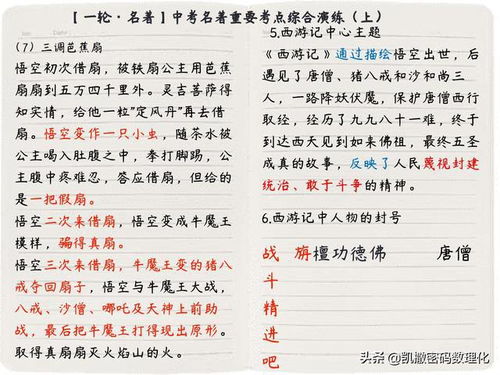 【一轮·名著】中考名著重要考点综合演练（上）
（7）三调芭蕉扇
悟空初次借扇，被铁扇公主用芭蕉
扇扇到五万四千里外。灵吉菩萨得
知实情，给他一粒"定风丹"再去借
扇。悟空变作一只小虫，随茶水被
公主喝入肚腹之中，拳打脚踢，公
主腹中疼难忍，答应借扇，但给的
是一把假扇。
悟空二次来借扇，悟空变成牛魔王
模样，骗得真扇。
悟空三次来借扇，牛魔王变的猪八
戒夺回扇子，悟空与牛魔王大战，
八戒、沙僧、哪吒及天神上前助
战，最后把牛魔王打得现出原形。
取得真扇扇灭火焰山的火。
5.西游记中心主题
《西游记》通过描绘悟空出世，后
遇见了唐僧、猪八戒和沙和尚三
人，一路降妖伏魔，保护唐僧西行
取经，经历了九九八十一难，终于
到达西天见到如来佛祖，最终五圣
成真的故事，反映了人民蔑视封建
统治、敢于斗争的精神。
6.西游记中人物的封号
战 旃檀功德佛 唐僧
斗
精
进
吧
头条 @凯澈密码数理化